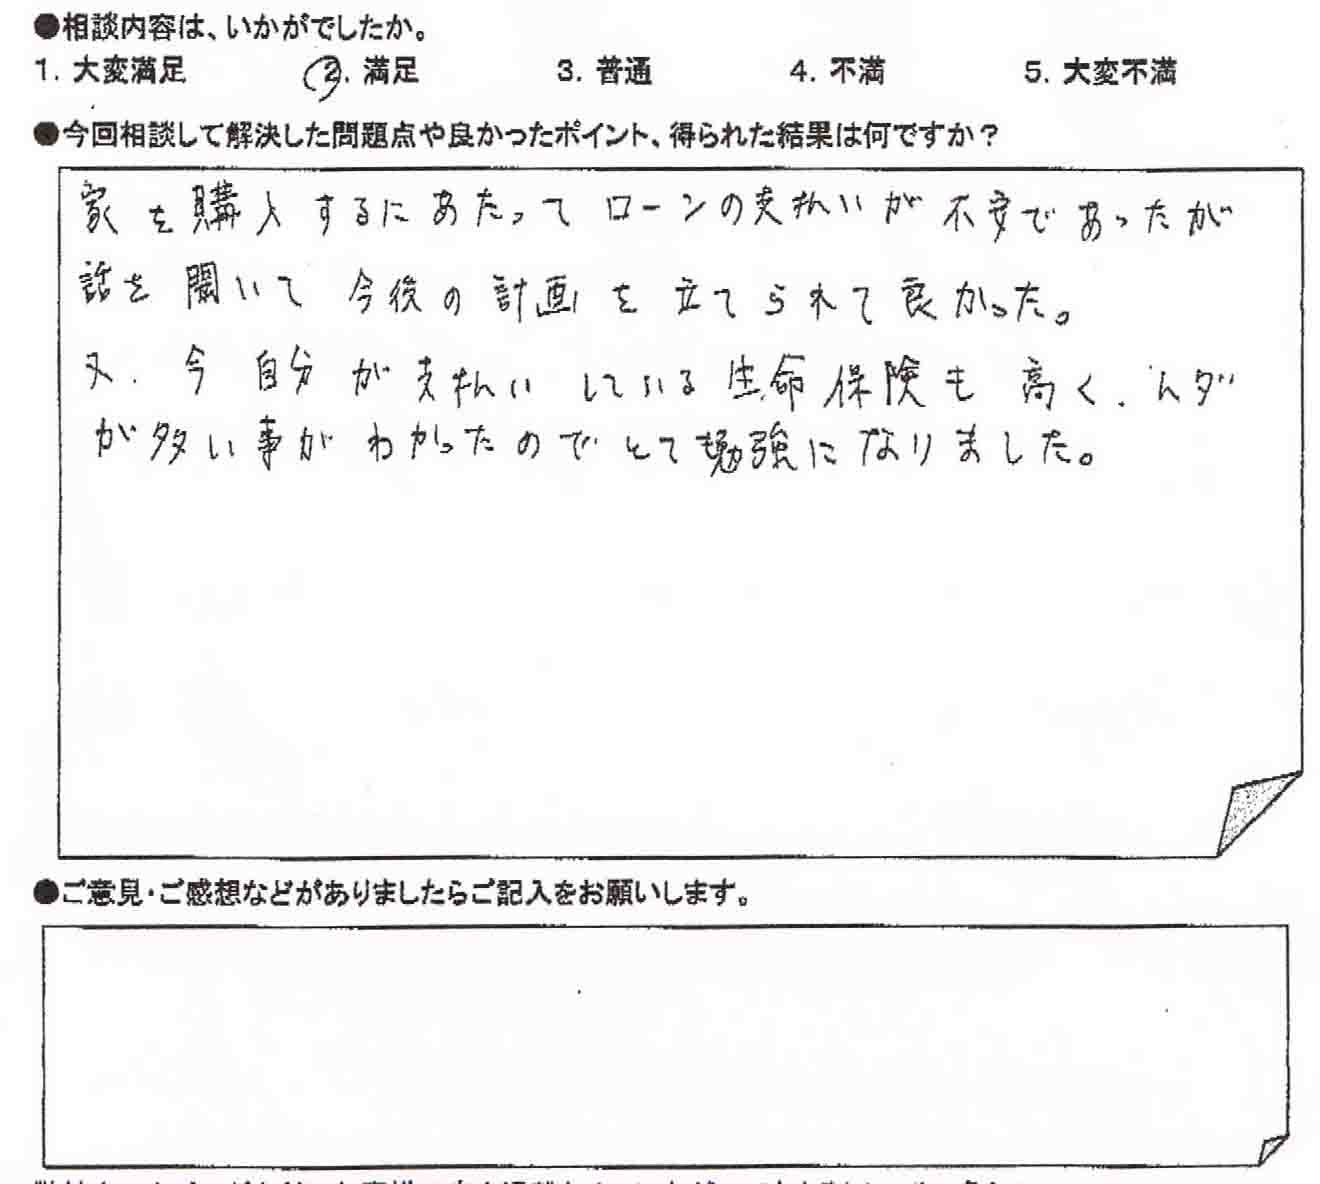 ●相談内容は、いかがでしたか。
1. 大変満足 2. 満足 3. 普通 4. 不満 5. 大変不満
●今回相談して解決した問題点や良かったポイント、得られた結果は何ですか？
家を購入するにあたってローンの支払いが不安であったが
話を聞いて今後の計画を立てられて良かった。
又、今自分が支払いしている生命保険も高く、ムダ
が多い事がわかったのでとて勉強になりました。
●ご意見・ご感想などがありましたらご記入をお願いします。